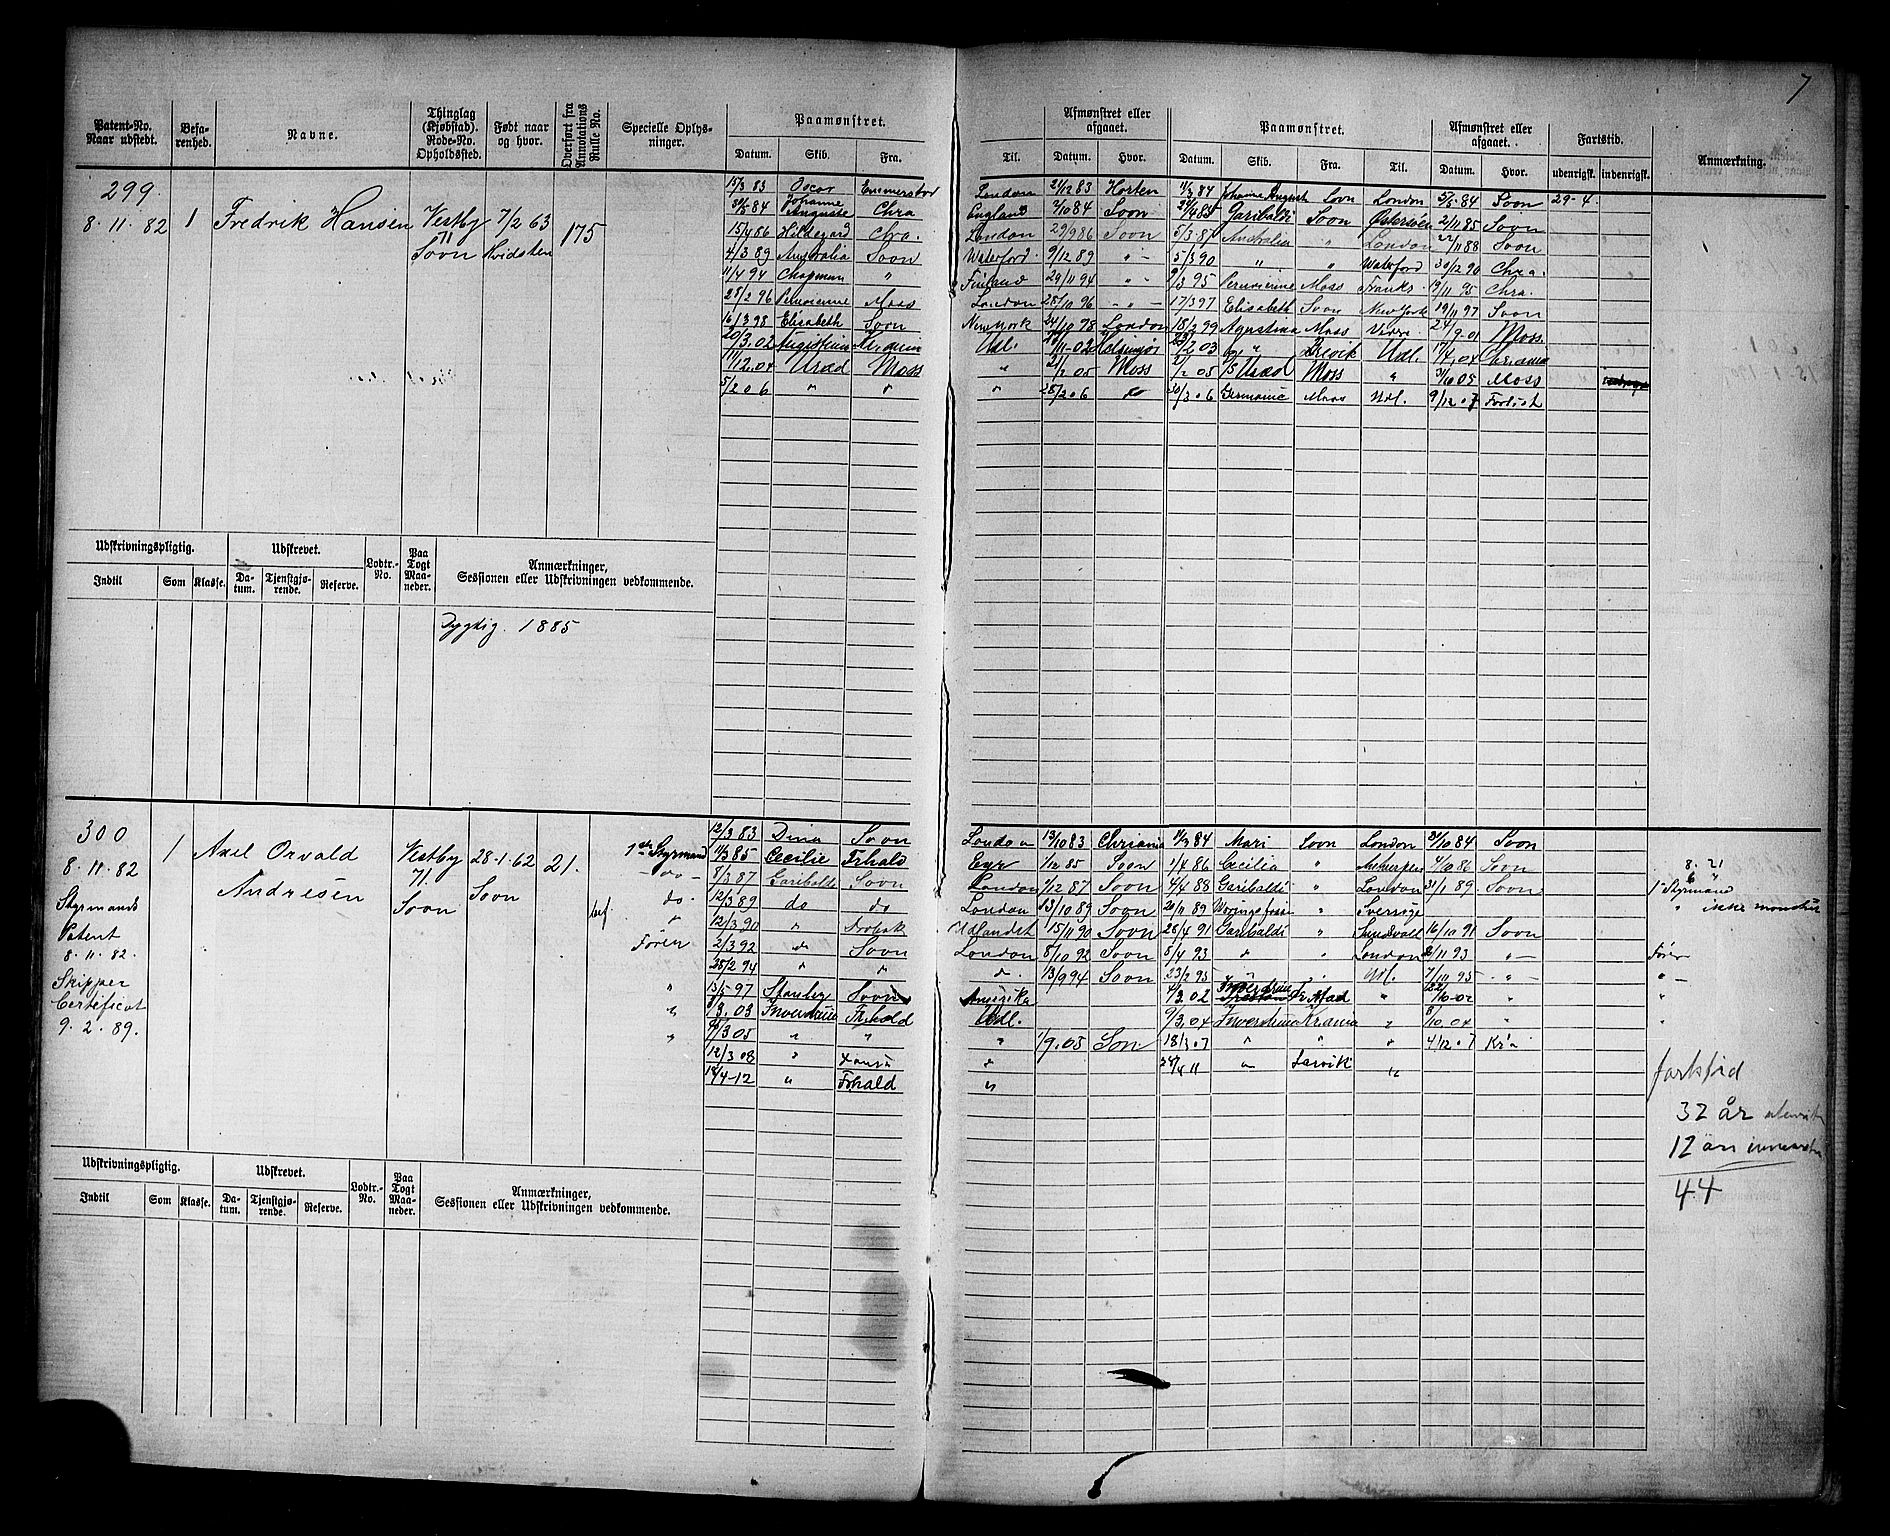 7
Patent-No. Naar udstedt.
Befa-renhed.
Navne.
Thinglag (Kjøbstad). Rode-No. Opholdssted.
Født naar og hvor.
Overført fra Annotations Rulle No.
Specielle Oplys-ninger.
Paamønstret.
Datum. Skib. Fra.
Til.
Afmønstret eller afgaaet.
Datum. Hvor.
Paamønstret.
Datum. Skib. Fra. Til.
Afmønstret eller afgaaet.
Datum. Hvor.
Fartstid.
udenrigsk. indenrigsk.
Anmærkning.
299.
8. 11. 82 1 Fredrik Hansen Vestby 71 Soon 7/2 63 Hvidsten 175
15/3 83 Oscar Emmerstad London 21/12 83 Horten 11/3 84 Johanne August Soon London 5/5 84 Soon 29-4.
31/5 84 Johanne Auguste Chra England 2/10 84 Soon 29/4 85 Garibaldi Soon Østersøen 2/11 85 Soon
15/4 86 Hildegard Chra. London 29/9 86 Soon 5/3 87 Australia " London 22/11 88 Soon
4/3 89 Australia Soon Waterford 9/12 89 " - 5/3 90 " " Waterford 30/12 90 Chra.
11/4 94 Chapman " Finland 29/11 94 " - 9/3 95 Peruvienne Moss Frankr. 19/11 95 Chra.
25/2 96 Peruvienne Moss London 28/10 96 - " - 17/3 97 Elisabeth Soon New York 19/11 97 Soon
16/3 98 Elisabeth Soon New York 24/10 98 London 18/2 99 Agustina Moss 24/9-01 Moss
20/3.02 Udl. 11-02 Helsingør 2 03 " Brevik Udl. 17/4.04
11/2.04 Uræd Moss " 21/2 05 Moss 1/2 05 Uræd Moss " 31/10 05 Moss
5/2 06 " " " 28/2 06 do 30/3 06 Germanic Moss Udl. 9/12.07 Forlist
Udskrivningspligtig.
Indtil Som Klasse.
Udskrevet.
Da-tum. Tjenstgjø-rende. Reserve.
Lodtr.-No.
Paa Togt Maa-neder.
Anmærkninger, Sessionen eller Udskrivningen vedkommende.
Dygtig. 1885
300
8. 11. 82 1 Axel Orvald Andresen Vestby 71. Soon 28-1-62 Soon 21.
Styrmands Patent 8. 11. 82.
Skipper Certificat 9. 2. 89.
12/3 83 Dina Soon London 13/10 83 Chriania 11/3 84 Mari Soon London 21/10 84 Soon
1ste Styrmand 11/3 85 Cecilie Frhald 1/12 85 Soon 1/4 86 Cecilia " Antwerpen 4/10 86 Soon 8. 21
- do - 8/3 87 Garibaldi Soon London 1/12 87 Soon 4/4 88 Garibaldi " London 31/1 89 Soon 1ste Styrmand
do. 12/3 89 do do London 13/10 89 Soon 20/11 89 " Sverige " ikke mønstret
" 12/3 90 " Drøbak Udlandet 15/11 90 Soon 25/4 91 Garibaldi " Sundsvall 16/10 91 Soon
Fører 2/3 92 " Soon London 8/10 92 Soon 5/4 93 " London 2/11 93 " - Fører
28/2 94 " " " 13/9 94 Soon 23/2 95 " Udl. 7/10 95 - " - " -
" 13/5 97 Stanley Soon Amerika 4/3.02 Frhald " 22/10-02 " "
" 9/3. 03 Frhald Udl. 9/3. 04 Krania " 8/10. 04 " "
" 9/3 05 " " " 1/9. 05 Son 18/3 07 " " " 4/12.07 Kr'a
12/3 08 " " 24/4 11 " Larvik "
14/4-12 " Frhald "
fartstid
32 år
12 år
44
Udskrivningspligtig.
Indtil Som Klasse.
Udskrevet.
Da-tum. Tjenstgjø-rende. Reserve.
Lodtr.-No.
Paa Togt Maa-neder.
Anmærkninger, Sessionen eller Udskrivningen vedkommende.